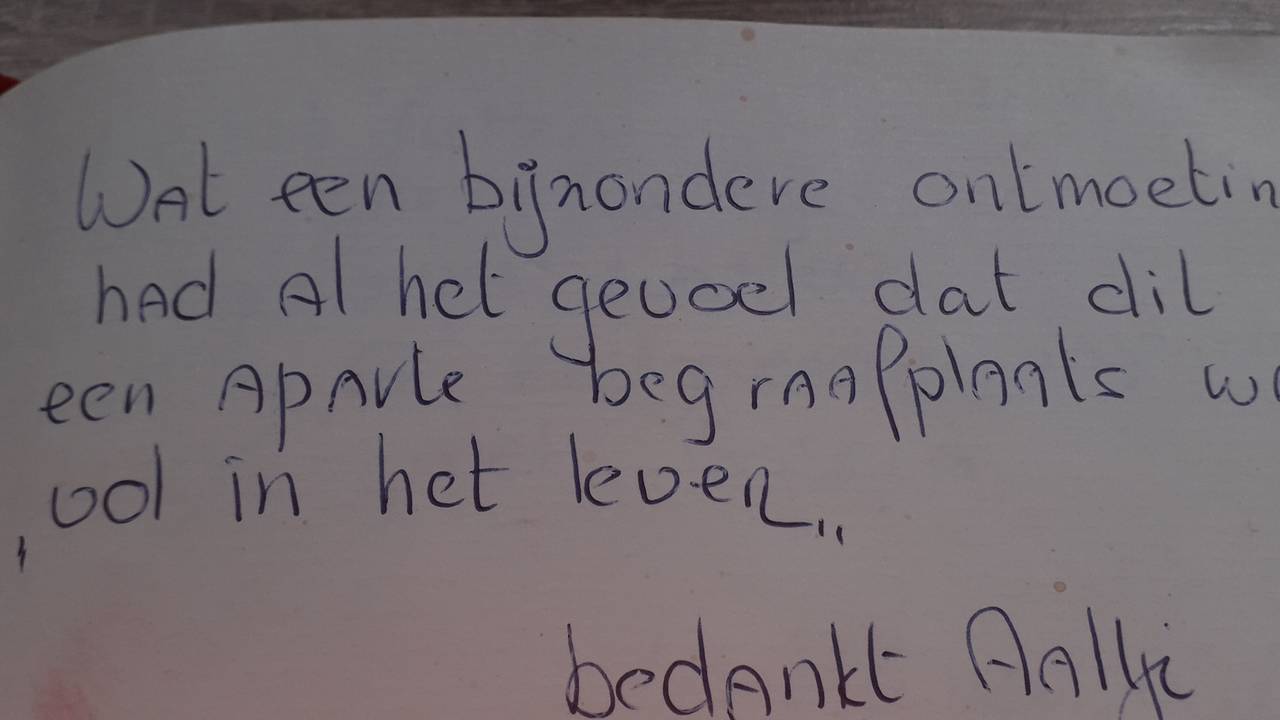 Wat een bijzondere ontmoetin
had al het gevoel dat dit
een aparte begraafplaats wa
, vol in het leven,,
bedankt Aaltje